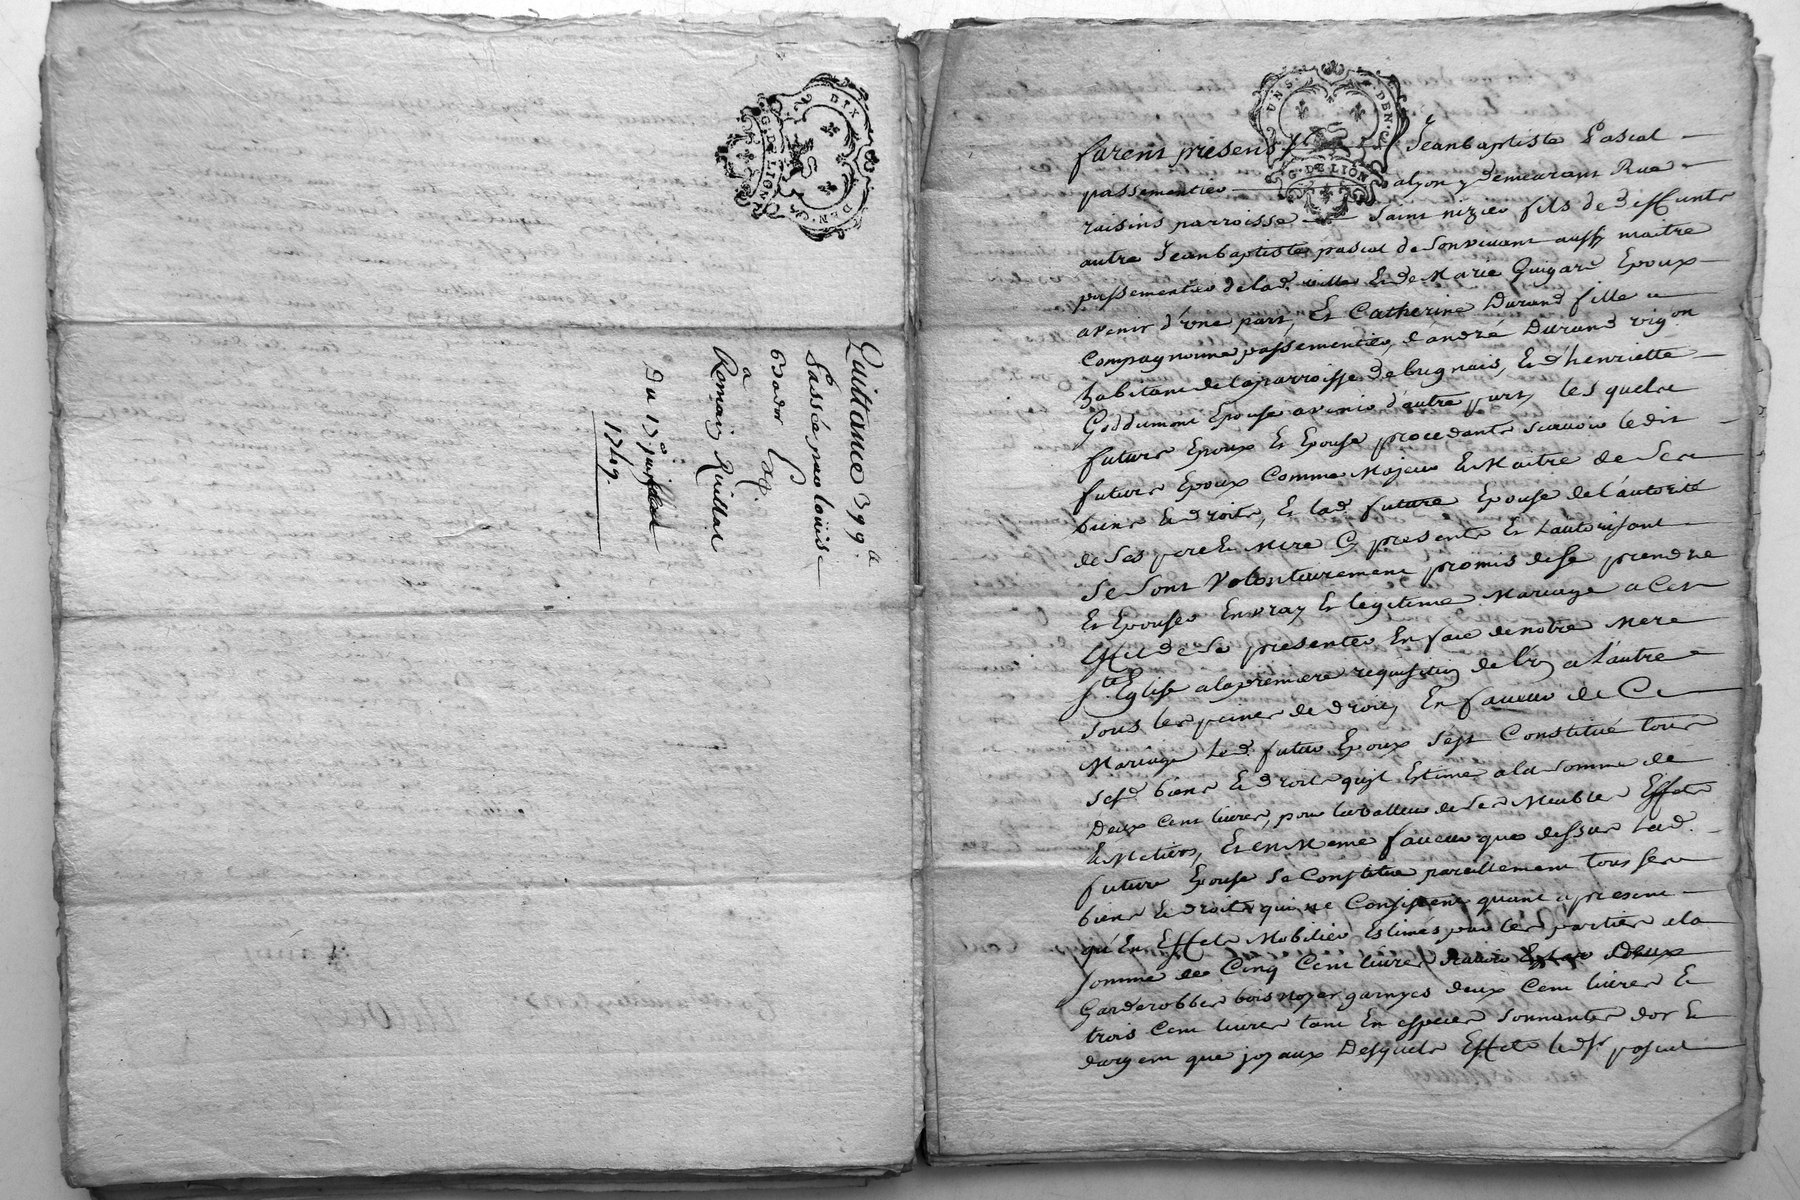 DIX S. DEN.CA
G. DE LION
Quittance 399#
Passée par loüise
Romain Ruillat
Du 13e juillet
1749.
UN S. DEN.CA
G. DE LION
furent présens Sr Jean baptiste Pascal
passementier alyon y demeurant Rue
raisins parroisse Saint nizier fils de deffunts
autre Jean baptiste pascal de son vivant aussy maitre
passementier de lad. ville Et de Marie Guigard Epoux
avenir d'une part, Et Catherine Durand fille
Compagnonne passementier, d'andré Durand vigon
habitant de la parroisse de brignais, Et d'henriette
Goddimont Epouse avenir d'autre part, les quels
futurs Epoux Et Epouse procedants scavoir ledit
futur Epoux Comme Majeur Et Maitre de Ses
biens Et droits, Et lad. future Epouse de l'autorité
de Ses pere Et Mere Cy presents Et L'autorisant
Se Sont Volontairement promis de se prendre
Et Epouser En vray Et legitime Mariage a Cet
Effet de Se presenter En face de notre Mere
Ste Eglise a la premiere requisition de l'un a L'autre
Sous les peines de droit, En faveur de Ce
Mariage Led. futur Epoux S'est Constitué tous
Sesd. biens Et droits qu'il Estime a la Somme de
Deux Cent livres, pour la valleur de Ses Meubles Effets
Et Metiers, Et en Meme faveur que dessus Lad.
future Epouse Se Constitue pareillement tous Ses
biens Et droits qui ne Consistent quant a present
qu'En Effets Mobiliers Estimés par les parties a la
Somme de Cinq Cent livres Scavoir Deux
Garderobbes bois noyer garnyes deux Cent livres Et
trois Cent livres tant En especes Sonnantes d'or Et
d'argent que joyaux Desquels Effets led. Sr pascal